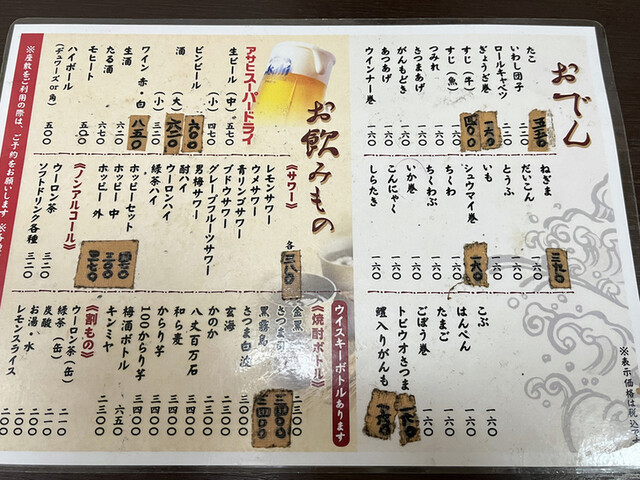 おでん
たこ 五五〇
いわし団子 二二〇
ロールキャベツ 二二〇
ぎょうざ巻 一六〇
すじ（牛） 四〇〇
すじ（魚） 一六〇
つみれ 一六〇
さつまあげ 一六〇
がんもどき 一六〇
あつあげ 一六〇
ウインナー巻 一六〇
ねぎま
だいこん 一六〇
とうふ 一六〇
いも 一六〇
シュウマイ巻 一六〇
ちくわ 一六〇
ちくわぶ 一六〇
いか巻 一六〇
こんにゃく 一六〇
しらたき 一六〇
こぶ 一六〇
はんぺん 一六〇
たまご 一六〇
ごぼう巻 一六〇
トビウオさつま
鱧入りがんも
※表示価格は税込で
お飲みもの
アサヒスーパードライ
生ビール（中） 五七〇
（小） 四七〇
ビンビール 六八〇
酒（大） 六二〇
（小） 三二〇
ワイン 赤・白 八五〇
生酒 六二〇
たる酒 六七〇
モヒート 五七〇
ハイボール
（デュワーズor角） 五〇〇
《サワー》
レモンサワー
ウメサワー
青リンゴサワー
ブドウサワー
グレープフルーツサワー
男梅サワー
酎ハイ
ウーロンハイ
緑茶ハイ
各三八〇
ホッピーセット
ホッピー 中
ホッピー 外
《ノンアルコール》
ウーロン茶 三二〇
ソフトドリンク各種 三二〇
ウイスキーボトルあります
《焼酎ボトル》
金黒
黒霧島
さつま白波 二三〇〇
玄海 二三〇〇
かのか 二三〇〇
八丈百万石 三四〇〇
和ら麦 三四〇〇
からり芋 三四〇〇
100からり芋 三四〇〇
梅酒ボトル
キンミヤ 二三〇〇
《割もの》
ウーロン茶（缶） 二一〇
緑茶（缶） 二一〇
炭酸 二一〇
お湯・水 二〇〇
レモンスライス
※座敷をご利用の際は、ご予約をお願いします